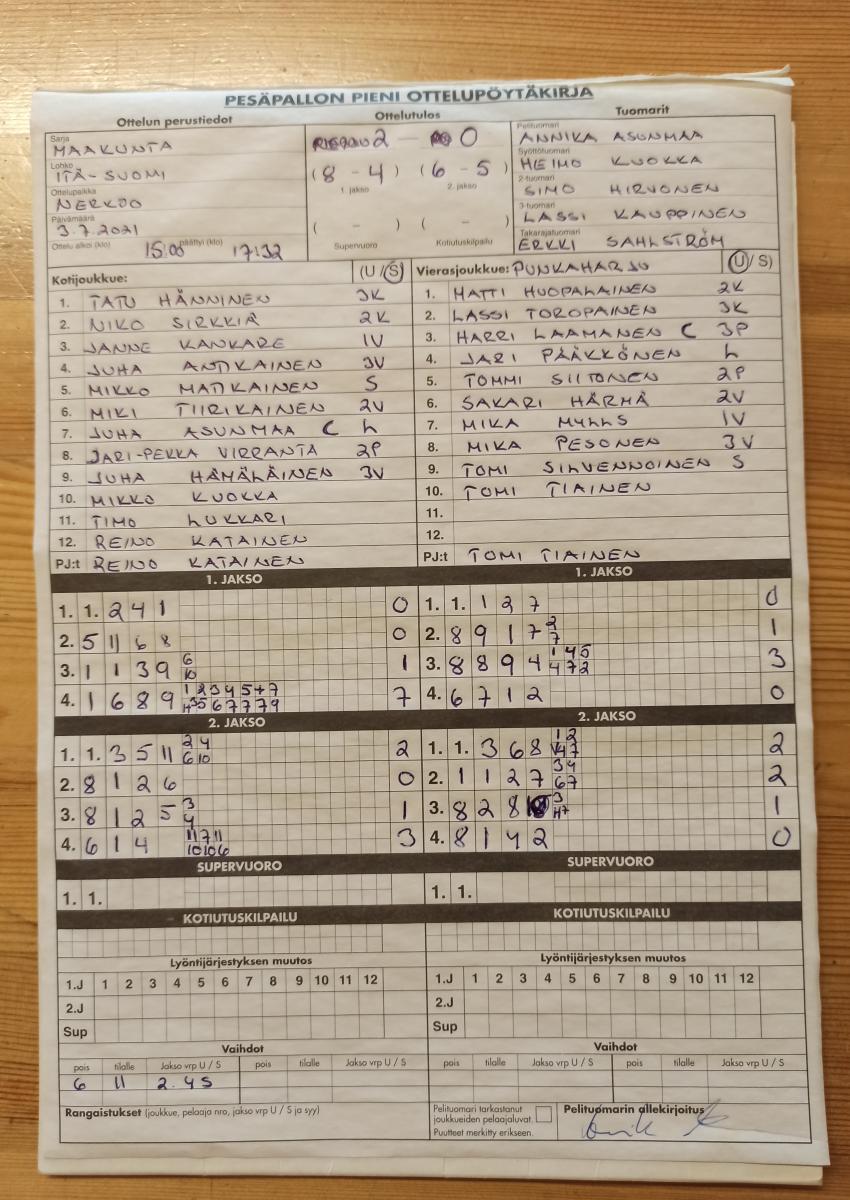 PESÄPALLON PIENI OTTELUPÖYTÄKIRJA
Ottelun perustiedot
Sarja
MAAKUNTA
Lohko
ITÄ-SUOMI
Ottelupaikka
NERKOO
Päivämäärä
3.7.2021
Ottelu alkoi (klo) 15:00 päättyi (klo) 17:32
Ottelutulos
2 - 0
(8 - 4) (6 - 5)
1. jakso 2. jakso
( - ) ( - )
Supervuoro Kotiutuskilpailu
Tuomarit
Pelituomari
ANNIKA ASUNMAA
Syöttötuomari
HEIMO KUOKKA
2-tuomari
SIMO HIRVONEN
3-tuomari
LASSI KAUPPINEN
Takarajatuomari
ERKKI SAHLSTRÖM
Kotijoukkue: (U / S)
1. TATU HÄNNINEN 3K
2. NIKO SIRKKIÄ 2K
3. JANNE KANKARE 1V
4. JUHA ANTIKAINEN 3V
5. MIKKO MATIKAINEN S
6. MIKI TIIRIKAINEN 2V
7. JUHA ASUNMAA C L
8. JARI-PEKKA VIRRANTA 2P
9. JUHA HÄMÄLÄINEN 3V
10. MIKKO KUOKKA
11. TIMO LUKKARI
12. REINO KATAINEN
PJ:t REINO KATAINEN
Vierasjoukkue: PUNKAHARJU (U / S)
1. MATTI HUOPALAINEN 2K
2. LASSI TOROPAINEN 3K
3. HARRI LAAMANEN C 3P
4. JARI PÄÄKKÖNEN L
5. TOMMI SIITONEN 2P
6. SAKARI HÄRMÄ 2V
7. MIKA MYLLS 1V
8. MIKA PESONEN 3V
9. TOMI SILVENNOINEN S
10. TOMI TIAINEN
11.
12.
PJ:t TOMI TIAINEN
1. JAKSO
1. 1. 2 4 1 0
2. 5 11 6 8 0
3. 1 1 3 9 6 10 1
4. 1 6 8 9 7
1. JAKSO
1. 1. 1 2 7 0
2. 8 9 1 7 2 7 1
3. 8 8 9 4 1 4 5 4 7 2 3
4. 6 7 1 2 0
2. JAKSO
1. 1. 3 5 11 2 4 6 10 2
2. 8 1 2 6 0
3. 8 1 2 5 3 4 1
4. 6 1 4 11 7 11 10 10 6 3
2. JAKSO
1. 1. 3 6 8 1 2 4 7 2
2. 1 1 2 7 3 4 6 7 2
3. 8 2 8 3 1
4. 8 1 4 2 0
SUPERVUORO
1. 1.
SUPERVUORO
1. 1.
KOTIUTUSKILPAILU
KOTIUTUSKILPAILU
Lyöntijärjestyksen muutos
1.J 1 2 3 4 5 6 7 8 9 10 11 12
2.J
Sup
Lyöntijärjestyksen muutos
1.J 1 2 3 4 5 6 7 8 9 10 11 12
2.J
Sup
Vaihdot
pois tilalle Jakso vrp U / S pois tilalle Jakso vrp U / S
6 11 2. 4S
Vaihdot
pois tilalle Jakso vrp U / S pois tilalle Jakso vrp U / S
Rangaistukset (joukkue, pelaaja nro, jakso vrp U / S ja syy)
Pelituomari tarkastanut
joukkueiden pelaajaluvat.
Puutteet merkitty erikseen.
Pelituomarin allekirjoitus